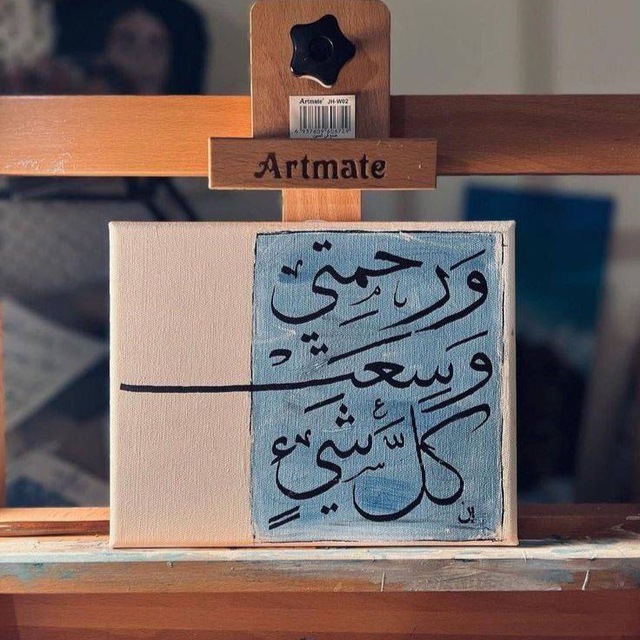 Artmate JH-W02
Artmate
وَرَحمتي
وَسِعَتْ
كُلَّ شَيْءٍ